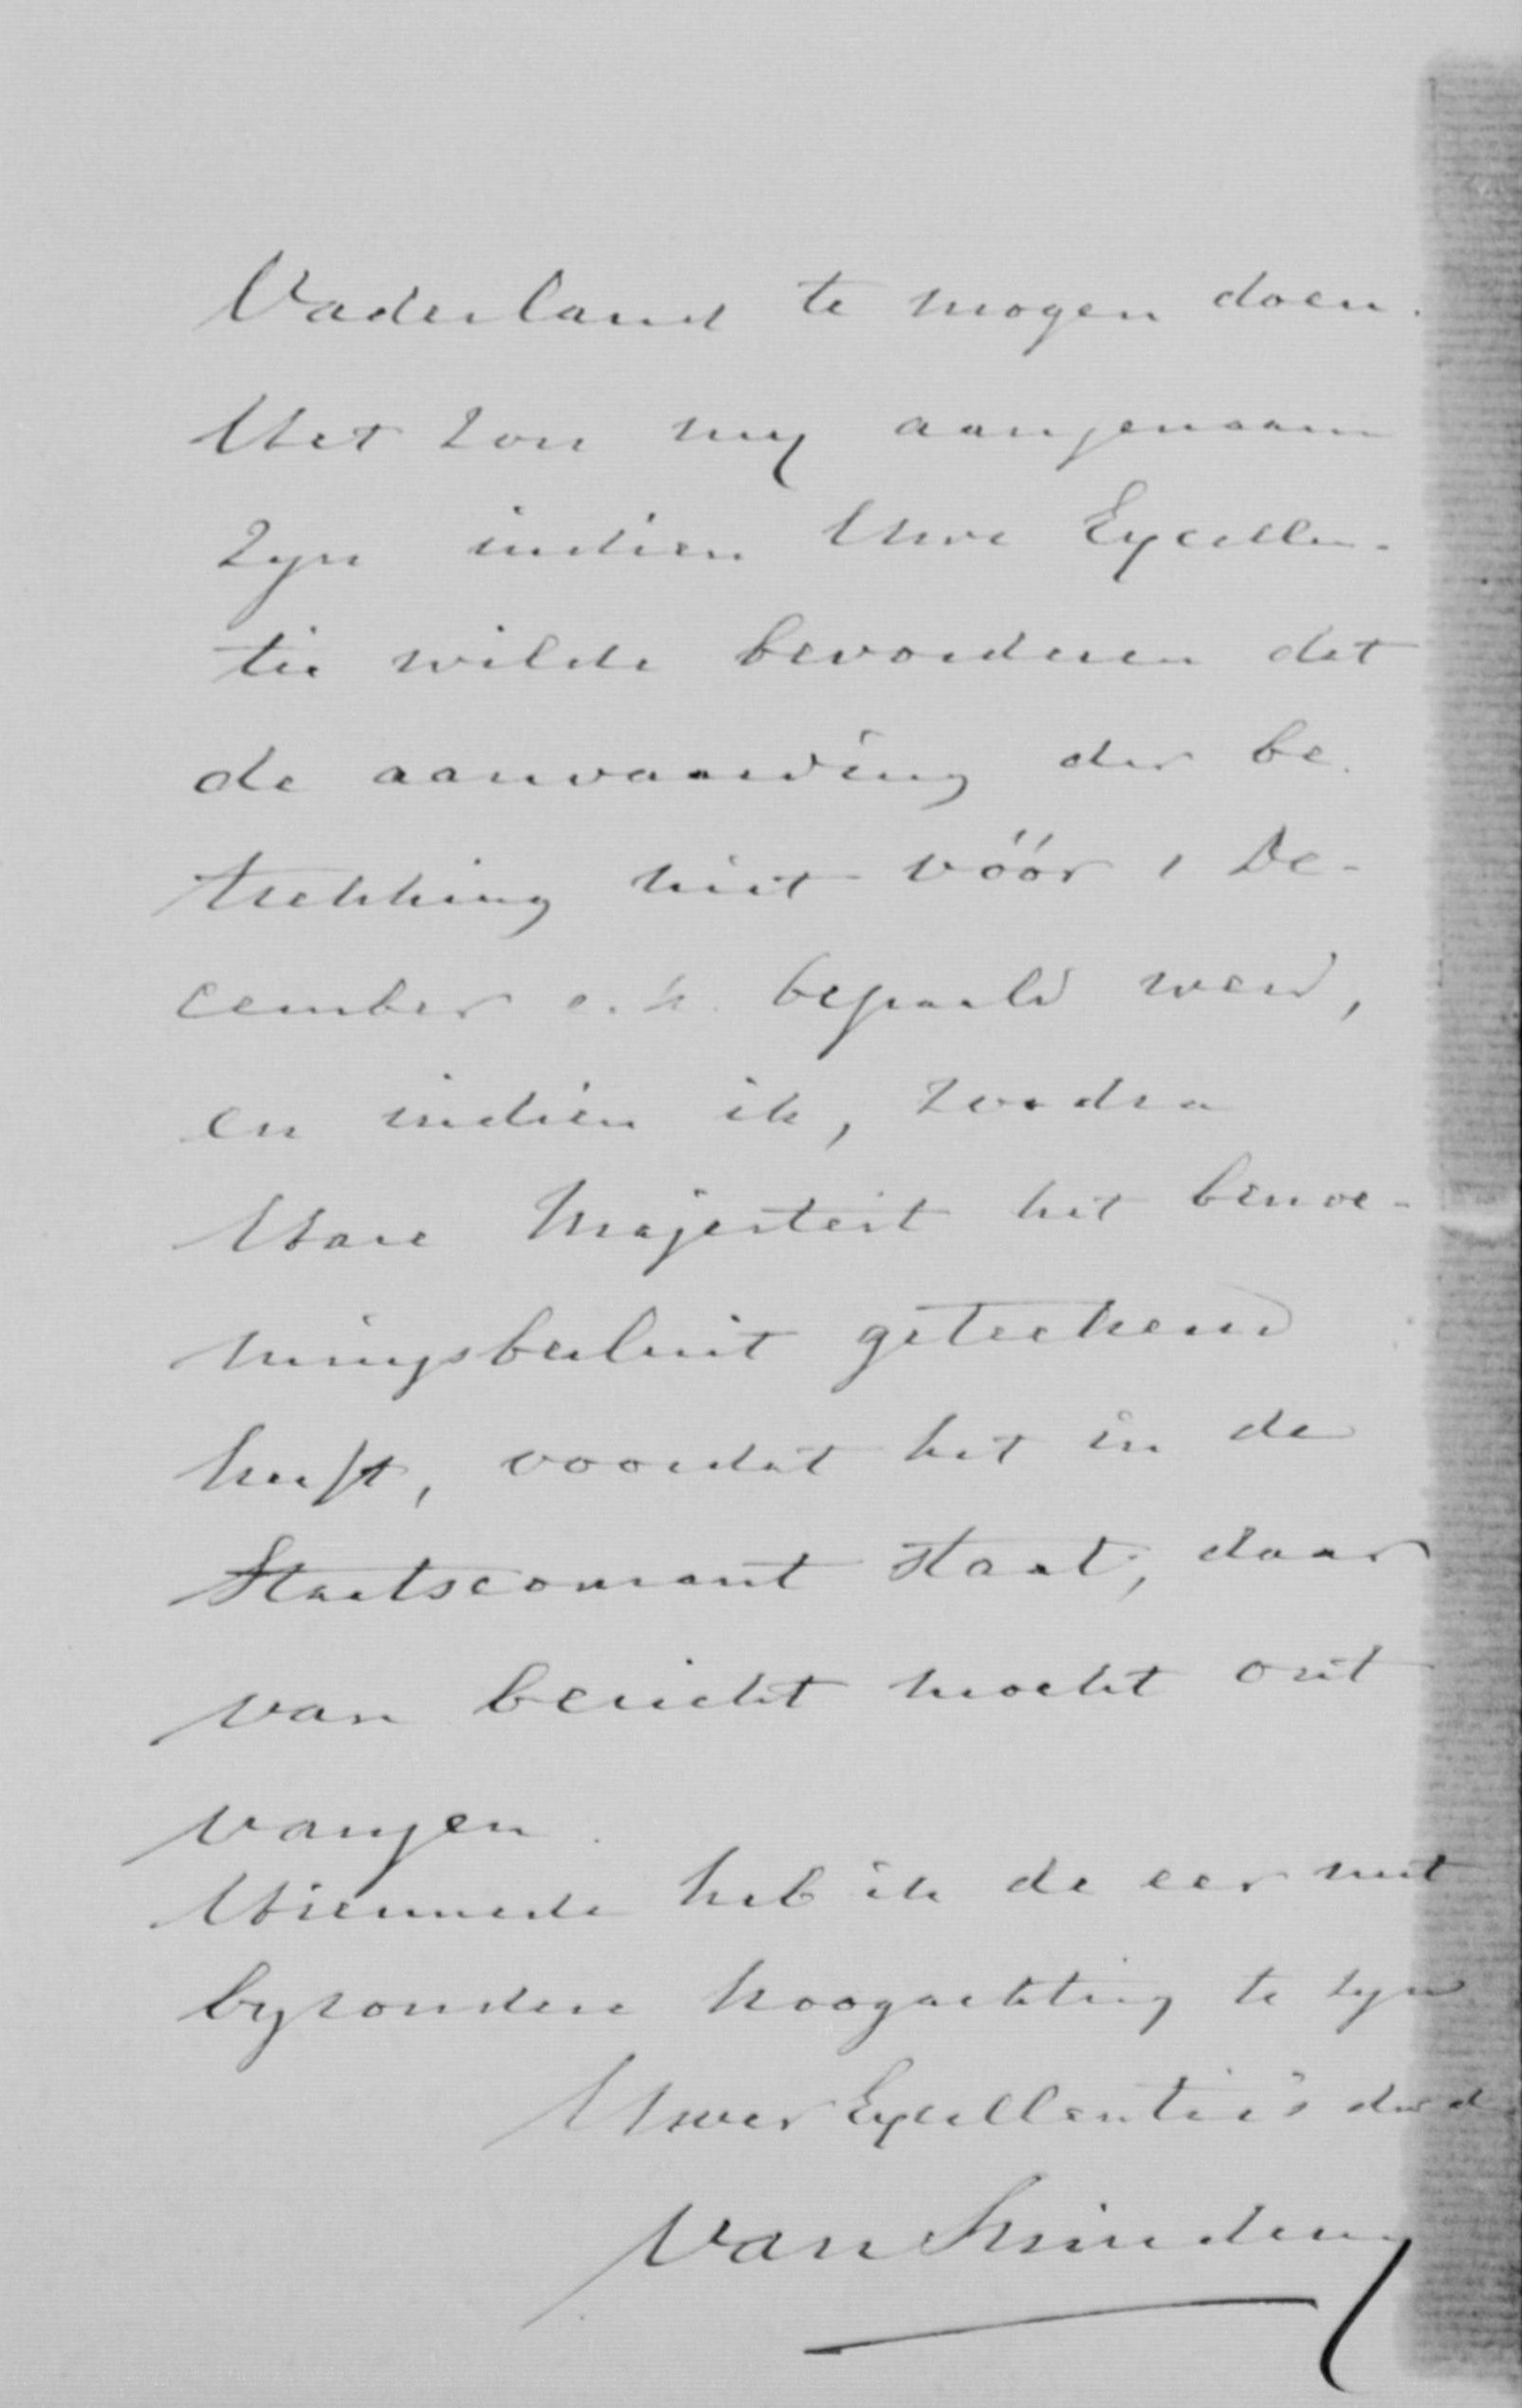 Vaderland te mogen doen.
Het zou my aangenaam
zyn indien Uwe Excellen-
tie wilde bevorderen dat
de aanvaarding der be-
trekking niet vóór 1 De-
cember e.k. bepaald werd,
en indien ik, zoodra
Hare Majesteit het benoe-
mingsbesluit geteekend
heeft, voordat het in de
Staatscourant staat, daar
van bericht mocht ont
vangen.
Hiermede heb ik de eer met
byzondere hoogachting te zyn
Uwer Excellentie's dwd
Van Swinderen